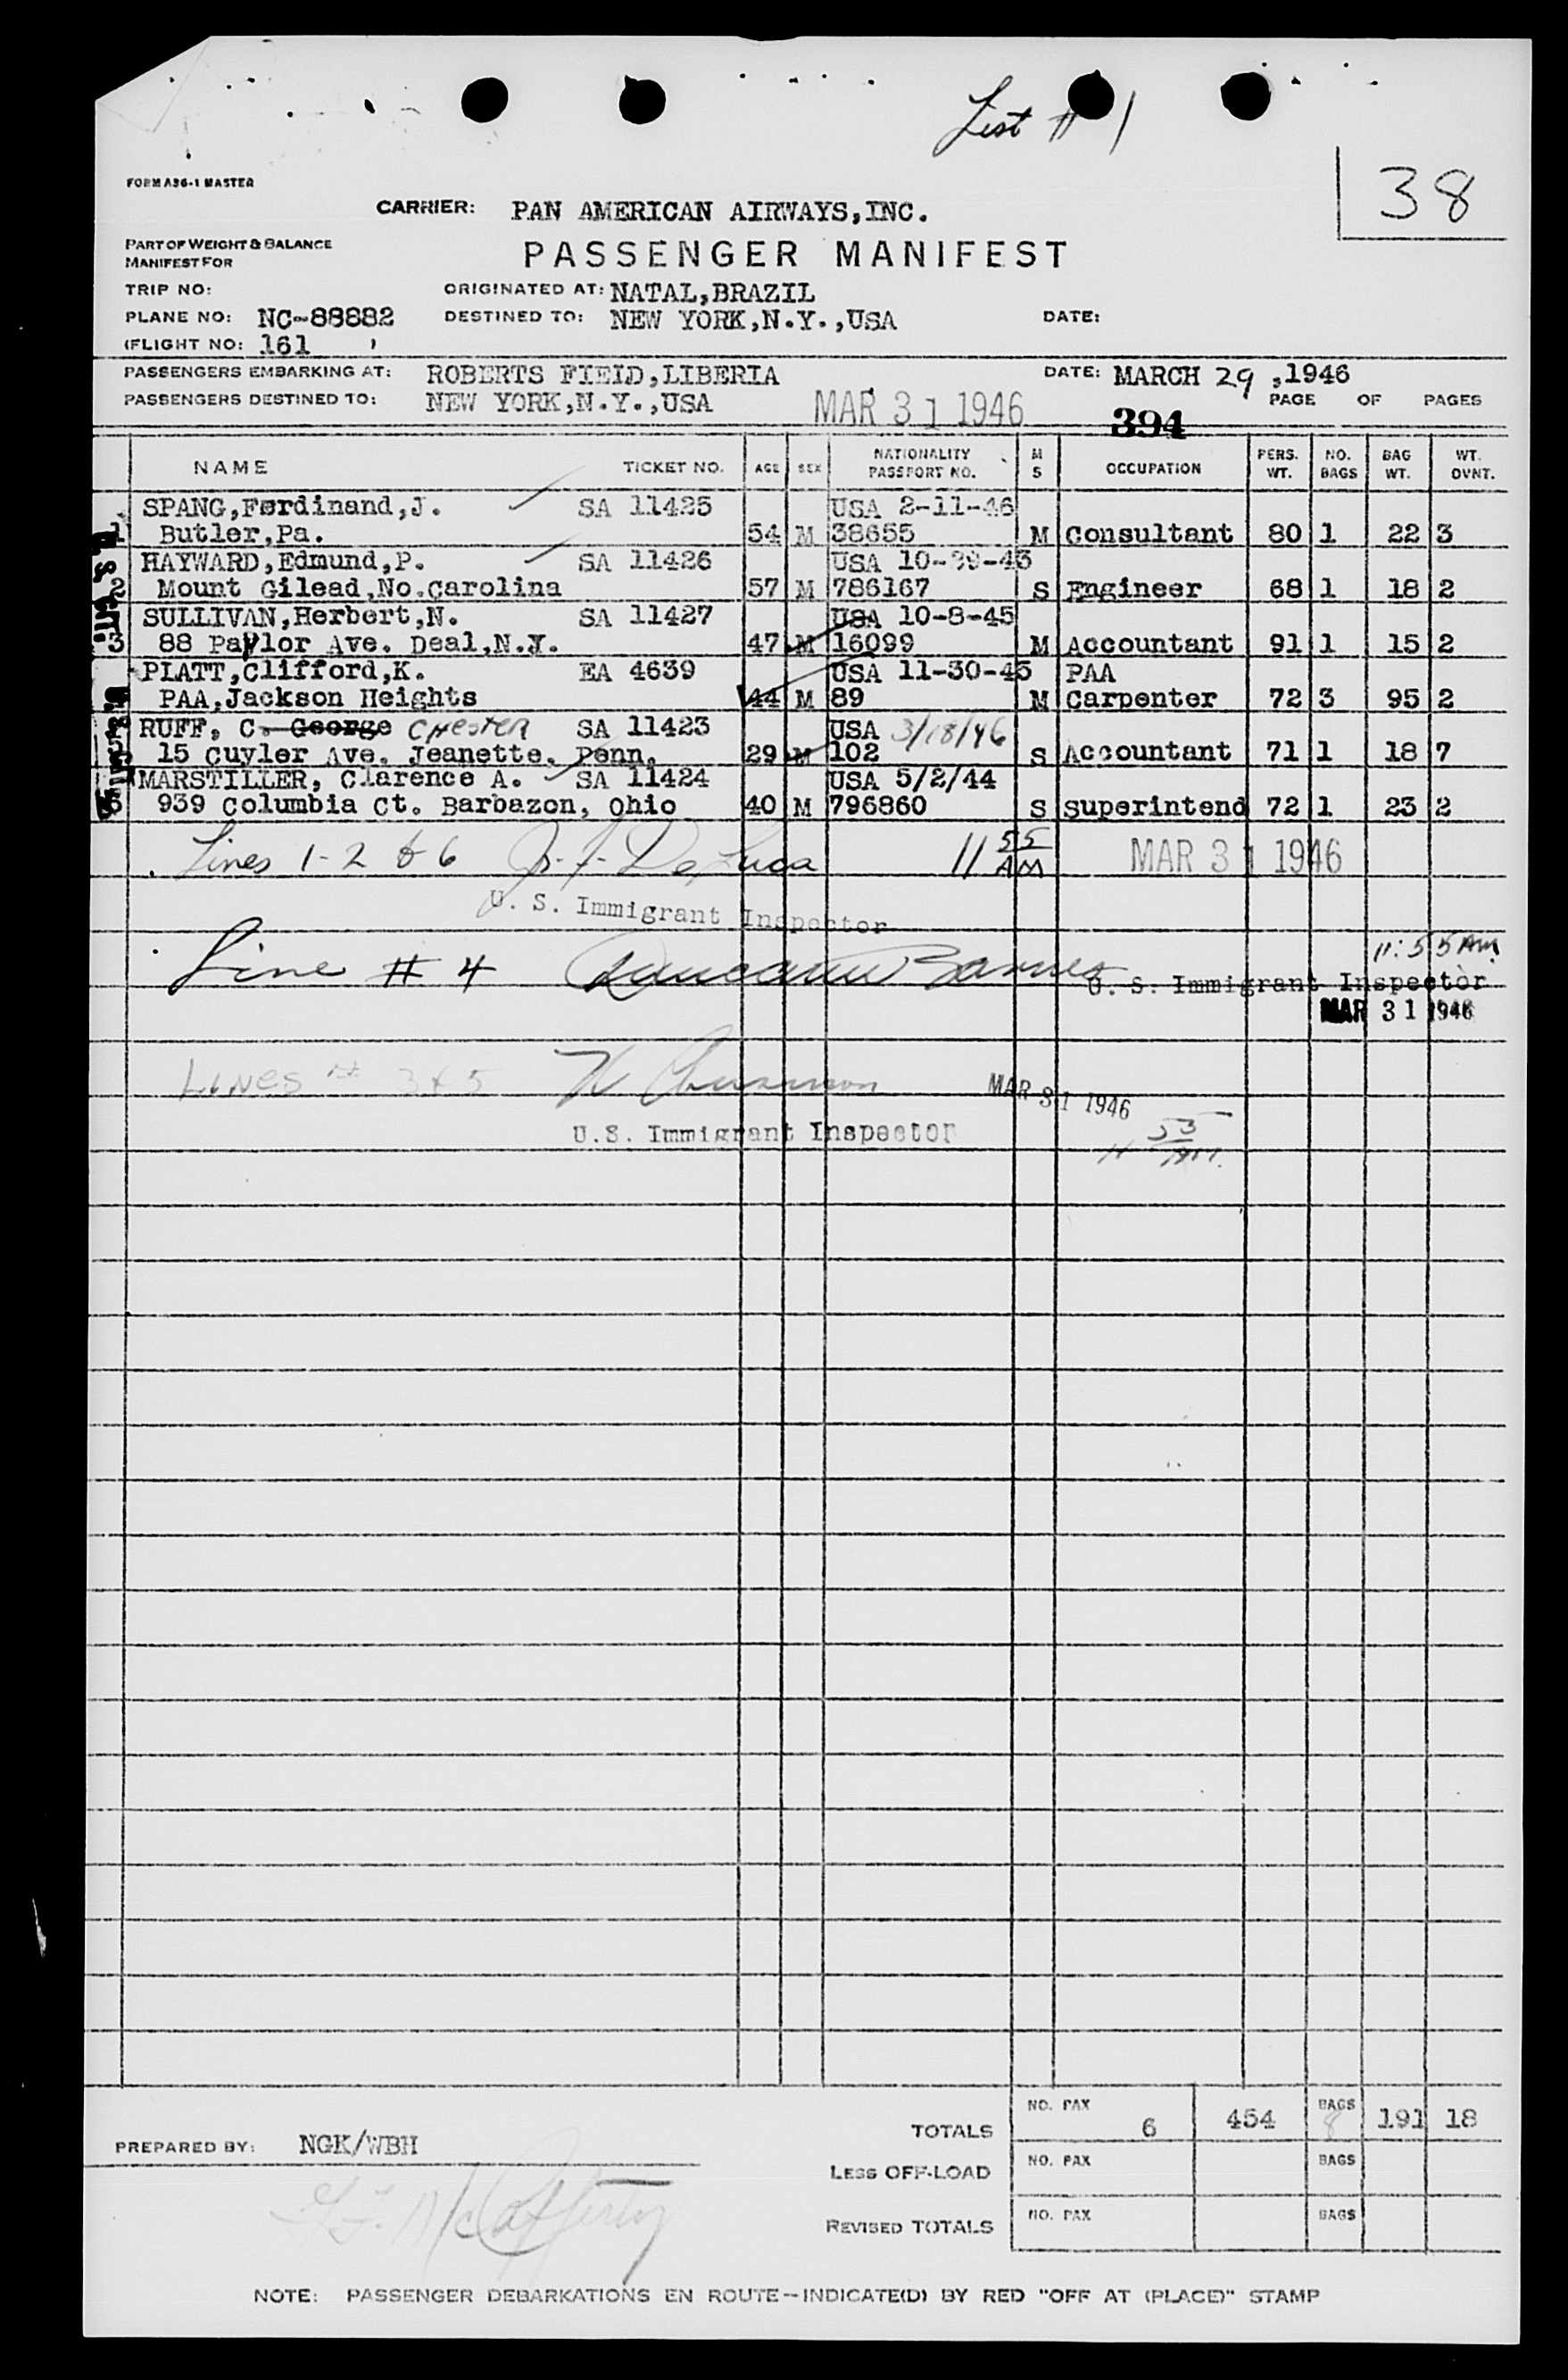 List # 1
38
FORM A36-1 MASTER
CARRIER: PAN AMERICAN AIRWAYS,INC.
PART OF WEIGHT & BALANCE
MANIFEST FOR
PASSENGER MANIFEST
TRIP NO: ORIGINATED AT: NATAL,BRAZIL
PLANE NO: NC-88882 DESTINED TO: NEW YORK,N.Y.,USA DATE:
(FLIGHT NO: 161
PASSENGERS EMBARKING AT: ROBERTS FIEID,LIBERIA DATE: MARCH 29 ,1946
PASSENGERS DESTINED TO: NEW YORK,N.Y.,USA MAR 31 1946 394 PAGE OF PAGES
NAME TICKET NO. AGE SEX NATIONALITY PASSPORT NO. M S OCCUPATION PERS. WT. NO. BAGS BAG WT. WT. OVNT.
SPANG,Ferdinand,J. SA 11425 USA 2-11-46
1 Butler,Pa. 54 M 38655 M Consultant 80 1 22 3
HAYWARD,Edmund,P. SA 11426 USA
2 Mount Gilead,No.Carolina 57 M 786167 S Engineer 68 1 18 2
SULLIVAN,Herbert,N. SA 11427 USA 10-8-45
3 88 Ave. Deal,N.J. 47 M 16099 M Accountant 91 1 15 2
PLATT,Clifford,K. EA 4639 USA 11-30-45 PAA
PAA,Jackson Heights 44 M 89 M Carpenter 72 3 95 2
RUFF, C. George CHESTER SA 11423 USA 3/18/46
15 Cuyler Ave. Jeanette, Penn. 29 M 102 S Accountant 71 1 18 7
MARSTILLER, Clarence A. SA 11424 USA 5/2/44
6 939 Columbia Ct. Barbazon, Ohio 40 M 796860 S Superintend 72 1 23 2
Lines 1-2 & 6 De Luca 11 55 AM MAR 31 1946
U. S. Immigrant Inspector
11:55 AM
Line # 4 Barnes U. S. Immigrant Inspector
MAR 31 1946
Lines # 3 & 5 MAR 31 1946
U.S. Immigrant Inspector 11
TOTALS NO. PAX 6 454 BAGS 8 191 18
PREPARED BY: NGK/WBH
LESS OFF-LOAD NO. PAX BAGS
McCafferty
REVISED TOTALS NO. PAX BAGS
NOTE: PASSENGER DEBARKATIONS EN ROUTE—INDICATE(D) BY RED "OFF AT (PLACE)" STAMP